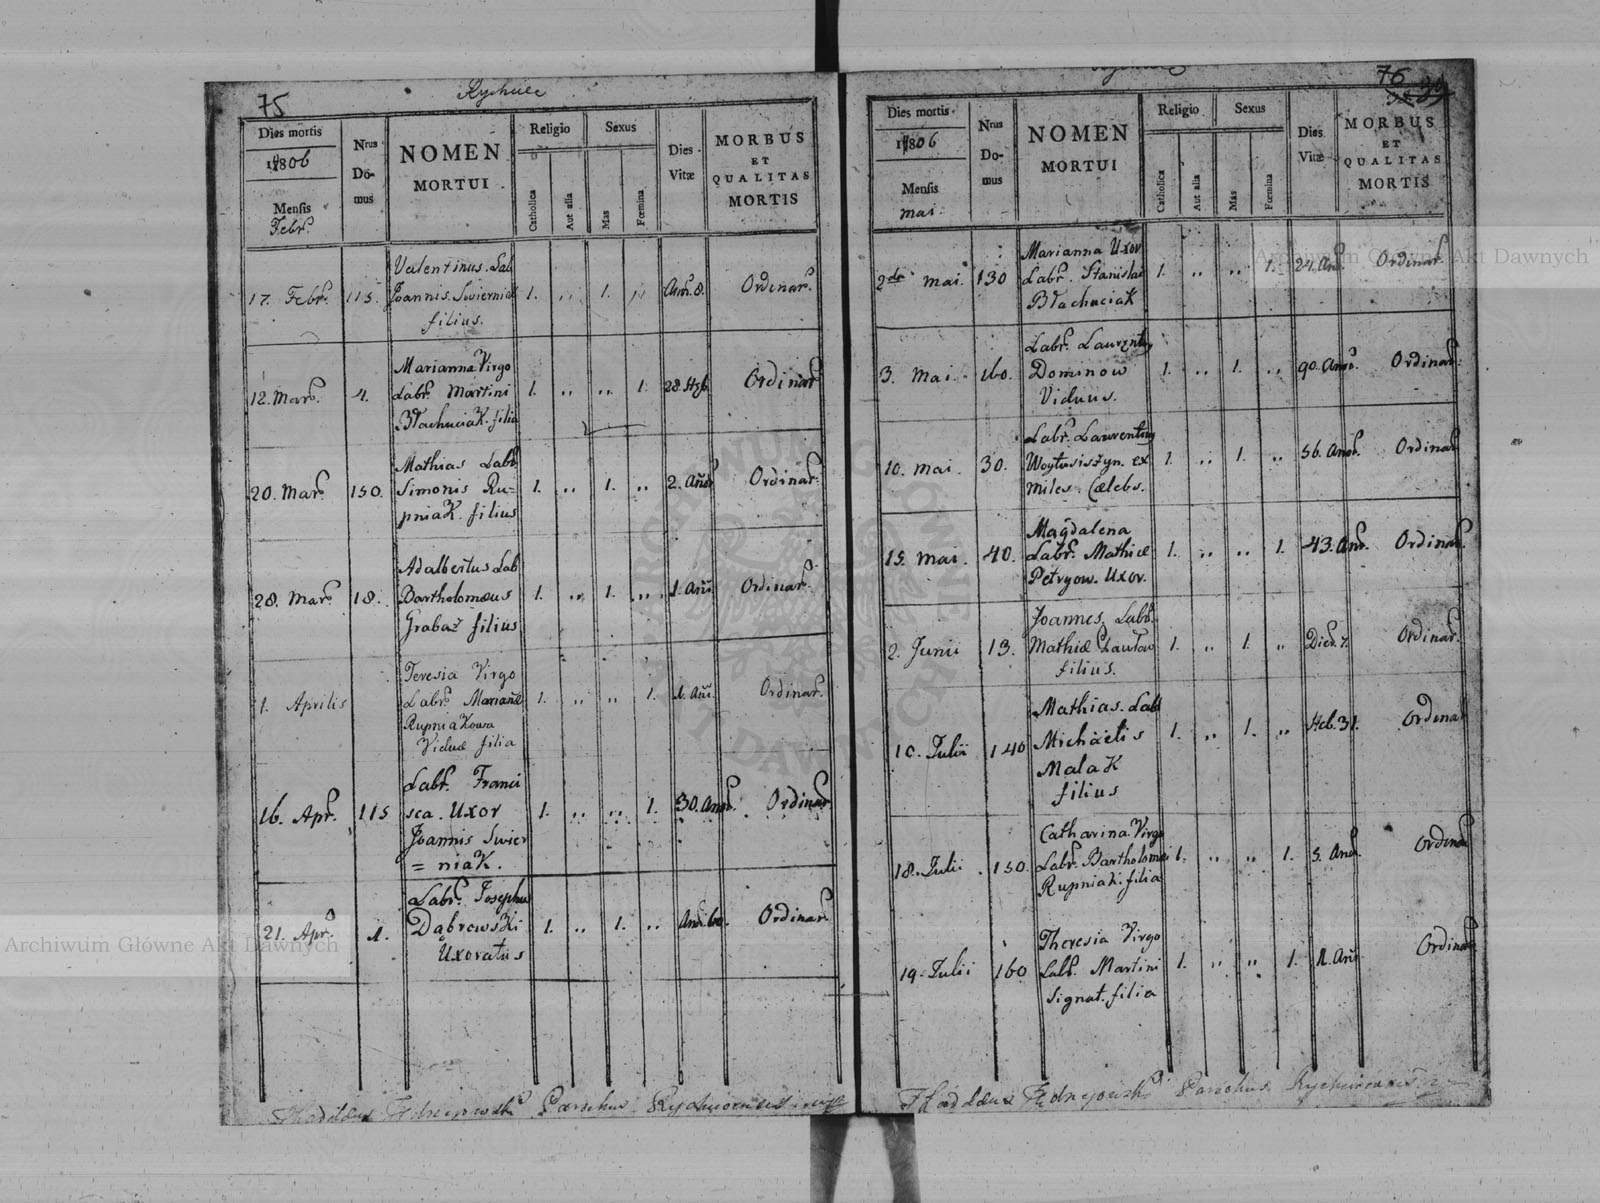 75
Rychcice
Dies mortis
1806
Mensis
Febr.
Nrus
Do-
mus
NOMEN
MORTUI
Religio
Catholica
Aut alia
Sexus
Mas
Fœmina
Dies
Vitæ
MORBUS
ET
QUALITAS
MORTIS
17. Febr. 115.
Valentinus. Lab
Joannis. Swierniak
filius.
1. " 1. " Anor. 8. Ordinar.
12. Mar. 4.
Marianna Virgo
Labr. Martini
Błachuciak. filia
1. " " 1. 28. Heb. Ordinar.
20. Mar. 150.
Mathias Labr.
Simonis Ru=
pniak. filius
1. " 1. " 2. Anor. Ordinar.
28. Mar. 18.
Adalbertus Lab
Bartholomæus
Grabaz filius
1. " 1. " 1. Ani. Ordinar.
1. Aprilis
Teresia Virgo
Labr. Mariannæ
Rupniakowa
Viduæ filia
1. " " 1. 1. Ani. Ordinar.
16. Apr. 115
Labr. Franci
sca. Uxor
Joannis Swier
= niak.
1. " " 1. 30. Anor. Ordinar.
21. Apr. 1.
Labr. Josephus
Dąbrowski
Uxoratus
1. " 1. " Anor. 60. Ordinar.
Thaddæus Parochus
76
39
Dies mortis
1806
Mensis
mai.
Nrus
Do-
mus
NOMEN
MORTUI
Religio
Catholica
Aut alia
Sexus
Mas
Fœmina
Dies
Vitæ
MORBUS
ET
QUALITAS
MORTIS
2da mai. 130
Marianna Uxor
Labr. Stanislai
Błachuciak
1. " " 1. 24. Anor. Ordinar.
3. Mai. 160.
Labr. Laurenty
Dominow
Viduus.
1. " 1. " 90. Anor. Ordinar.
10. mai. 30.
Labr. Laurentius
Woytusiszyn. ex
miles. Cælebs.
1. " 1. " 56. Anor. Ordinar.
15. mai. 40.
Magdalena
Labr. Mathiæ
Petryow. Uxor.
1. " " 1. 43. Anor. Ordinar.
2. Junii 13.
Joannes Labr.
Mathiæ
filius.
1. " 1. " Dier. 7. Ordinar.
10. Julii 140
Mathias. Lab
Michaelis
Malak
filius
1. " 1. " Heb. 31. Ordinar
18. Julii 150.
Catharina. Virgo
Labr. Bartholomei
Rupniak. filia
1. " " 1. 5. Anor. Ordinar
19. Julii 160
Theresia Virgo
Labr. Martini
Signat. filia
1. " " 1. 1. Ani Ordinar
Thaddæus Parochus
Archiwum Główne Akt Dawnych
Archiwum Główne Akt Dawnych
ARCHIWUM GŁÓWNE AKT DAWNYCH